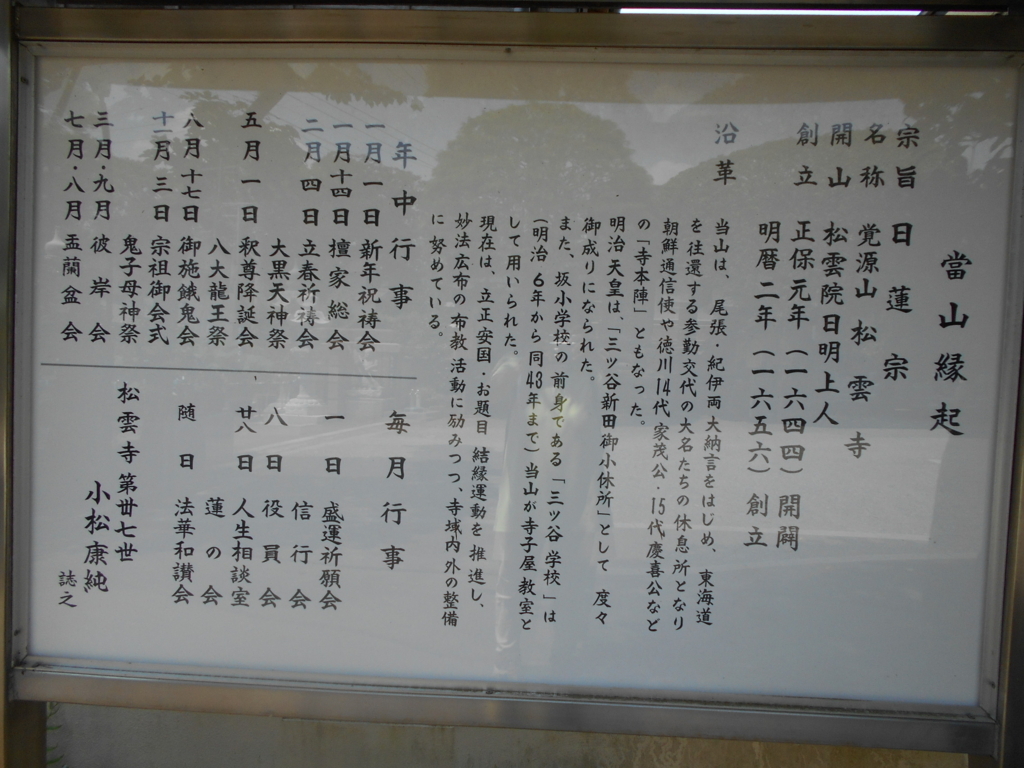 當山縁起
宗旨 日蓮宗
名称 覚源山 松雲寺
開山 松雲院日明上人
創立 正保元年(一六四四)開闢
明暦二年(一六五六)創立
沿革 当山は、尾張・紀伊両大納言をはじめ、東海道
を往還する参勤交代の大名たちの休息所となり
朝鮮通信使や徳川14代家茂公・15代慶喜公など
の「寺本陣」ともなった。
明治天皇は、「三ツ谷新田御小休所」として 度々
御成りになられた。
また、坂小学校の前身である「三ツ谷学校」は
(明治6年から同43年まで)当山が寺子屋教室と
して用いられた。
現在は、立正安国・お題目結縁運動を推進し、
妙法広布の布教活動に励みつつ、寺域内外の整備
に努めている。
年中行事
一月一日 新年祝祷会
一月十四日 檀家総会
二月四日 立春祈祷会
大黒天神祭
五月一日 釈尊降誕会
八大龍王祭
八月十七日 御施餓鬼会
十一月三日 宗祖御会式
鬼子母神祭
三月・九月 彼岸会
七月・八月 盂蘭盆会
毎月行事
一日 盛運祈願会
信行会
八日 役員会
廿八日 人生相談室
蓮の会
随日 法華和讃会
松雲寺第丗七世
小松康純 誌之